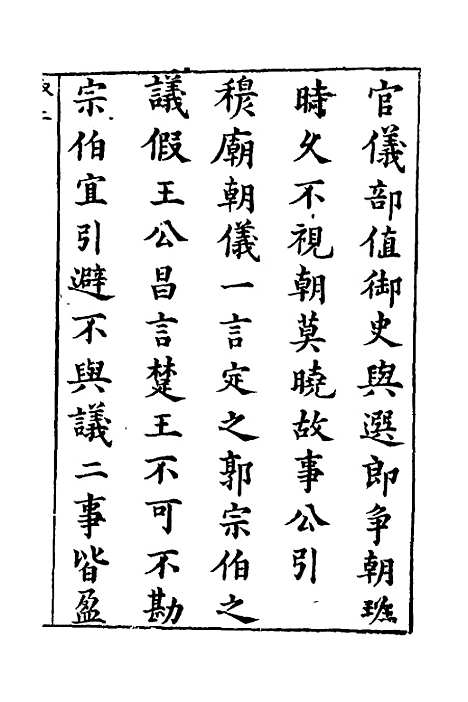 官儀部值御史與選郎争朝班
時久不視朝莫曉故事公引
穆廟朝儀一言定之郭宗伯之
議假王公昌言楚王不可不勘
宗伯宜引避不與議二事皆盈